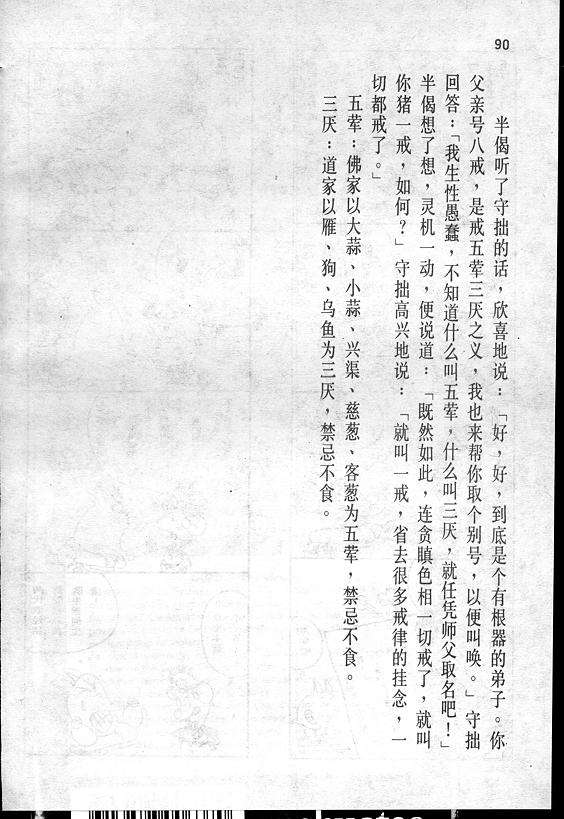 90
半偈听了守拙的话，欣喜地说：「好，好，到底是个有根器的弟子。你
父亲号八戒，是戒五荤三厌之义，我也来帮你取个别号，以便叫唤。」守拙
回答：「我生性愚蠢，不知道什么叫五荤，什么叫三厌，就任凭师父取名吧！」
半偈想了想，灵机一动，便说道：「既然如此，连贪瞋色相一切戒了，就叫
你猪一戒，如何？」守拙高兴地说：「就叫一戒，省去很多戒律的挂念，一
切都戒了。」
五荤：佛家以大蒜、小蒜、兴渠、慈葱、客葱为五荤，禁忌不食。
三厌：道家以雁、狗、乌鱼为三厌，禁忌不食。